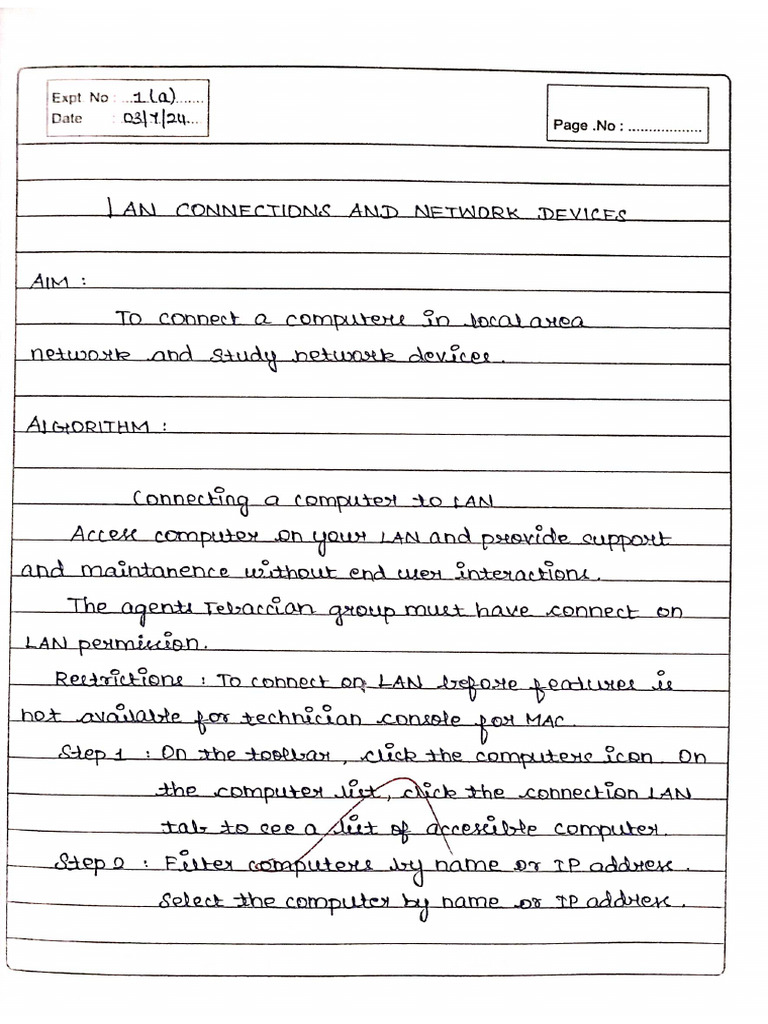 Expt No : 1(a)
Date : 03/7/24
Page .No : ..................
LAN CONNECTIONS AND NETWORK DEVICES
AIM :
To connect a computers in local area
network and study network devices.
ALGORITHM :
Connecting a computer to LAN
Access computer on your LAN and provide support
and maintanence without end user interactions.
The agents group must have connect on
LAN permission.
Restrictions : To connect on LAN before features is
not available for technician console for MAC.
Step 1 : On the toolbar, click the computers icon. On
the computer list, click the connection LAN
tab to see a list of accessible computer.
Step 2 : Filter computers by name or IP address.
Select the computer by name or IP address.